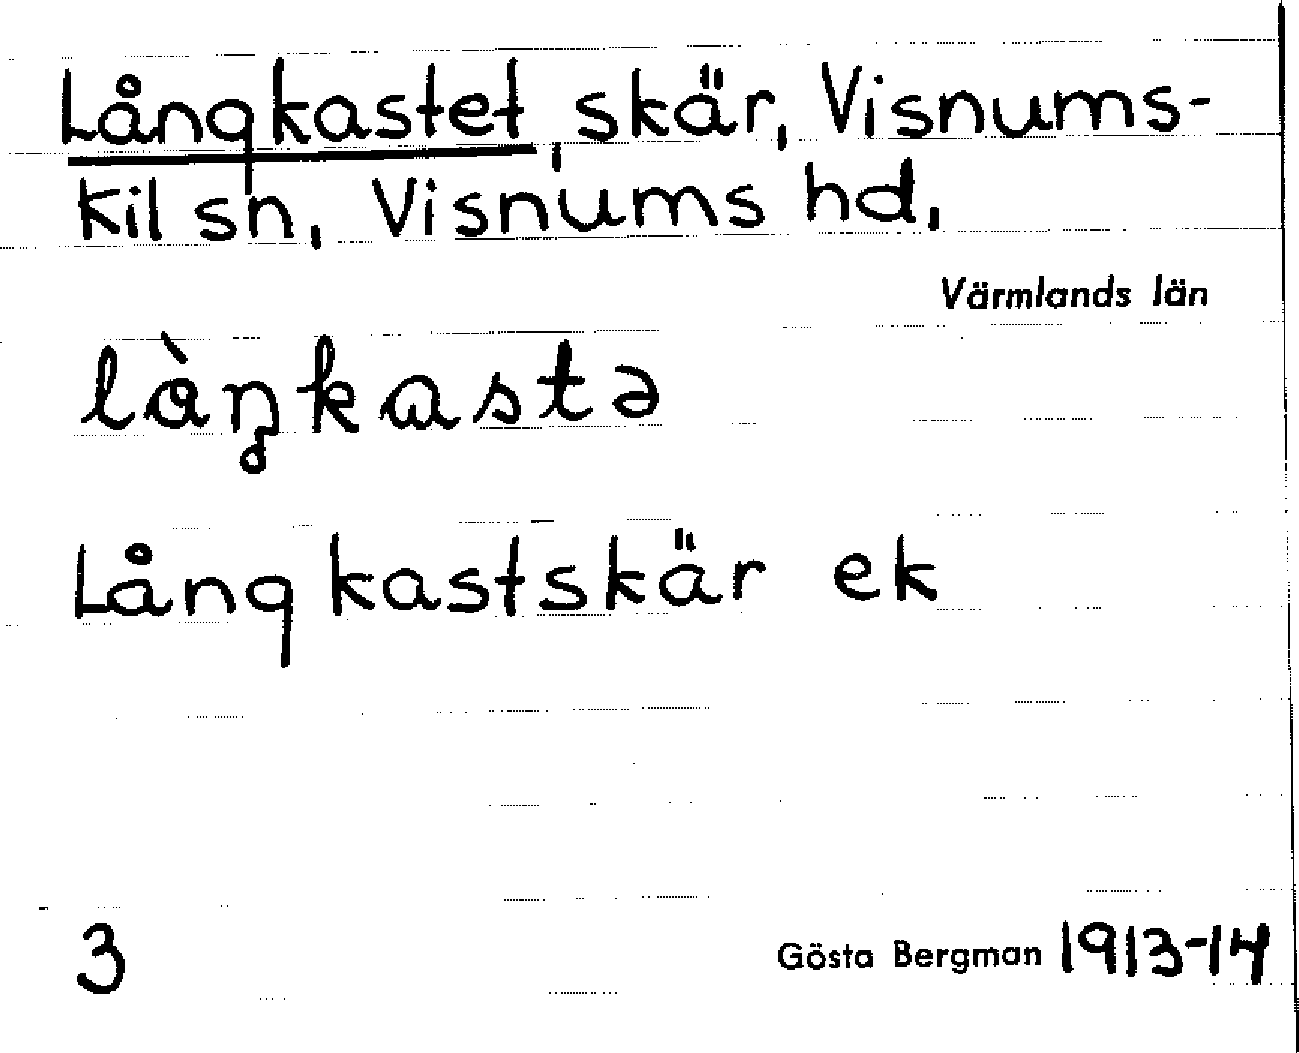 Långkastet, skär, Visnums-
Kil sn, Visnums hd,
Värmlands län
làŋkastə
Långkastskär ek
3
Gösta Bergman 1913-14